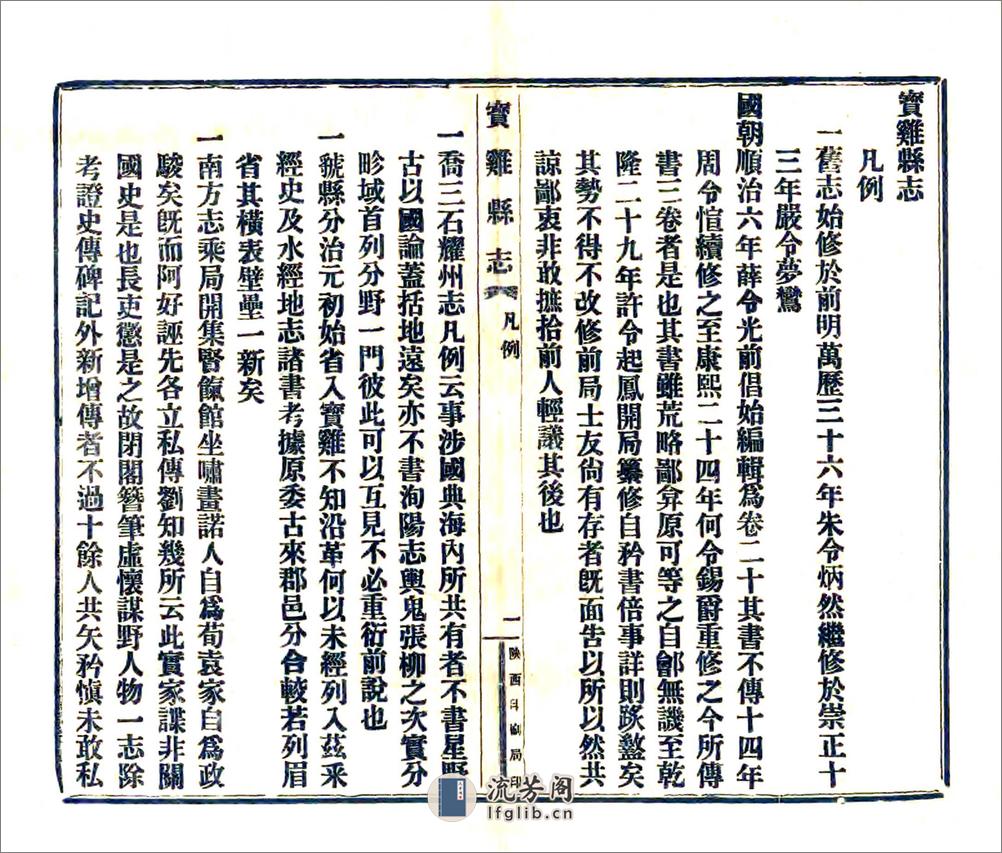 寶雞縣志
凡例
一舊志始修於前明萬歷三十六年朱令炳然繼修於崇正十
三年嚴令夢鸞
國朝順治六年薛令光前倡始編輯爲卷二十其書不傳十四年
周令愃續修之至康熙二十四年何令錫爵重修之今所傳
書三卷者是也其書雖荒略鄙弇原可等之自鄶無譏至乾
隆二十九年許令起鳳開局纂修自矜書倍事詳則踳盭矣
其勢不得不改修前局士友尙有存者旣面告以所以然共
諒鄙衷非敢摭拾前人輕議其後也
寶雞縣志
凡例
二
陝西印刷局印
一喬三石耀州志凡例云事涉國典海內所共有者不書星野
古以國論蓋括地遠矣亦不書洵陽志輿鬼張柳之次實分
畛域首列分野一門彼此可以互見不必重衍前說也
一虢縣分治元初始省入寶雞不知沿革何以未經列入茲采
經史及水經地志諸書考據原委古來郡邑分合較若列眉
省其橫表壁壘一新矣
一南方志乘局開集賢餼館坐嘯畫諾人自爲荀袁家自爲政
駿矣旣而阿好誣先各立私傳劉知幾所云此實家諜非關
國史是也長吏懲是之故閉閣簪筆虛懷謀野人物一志除
考證史傳碑記外新增傳者不過十餘人共矢矜愼未敢私
流芳阁
lfglib.cn